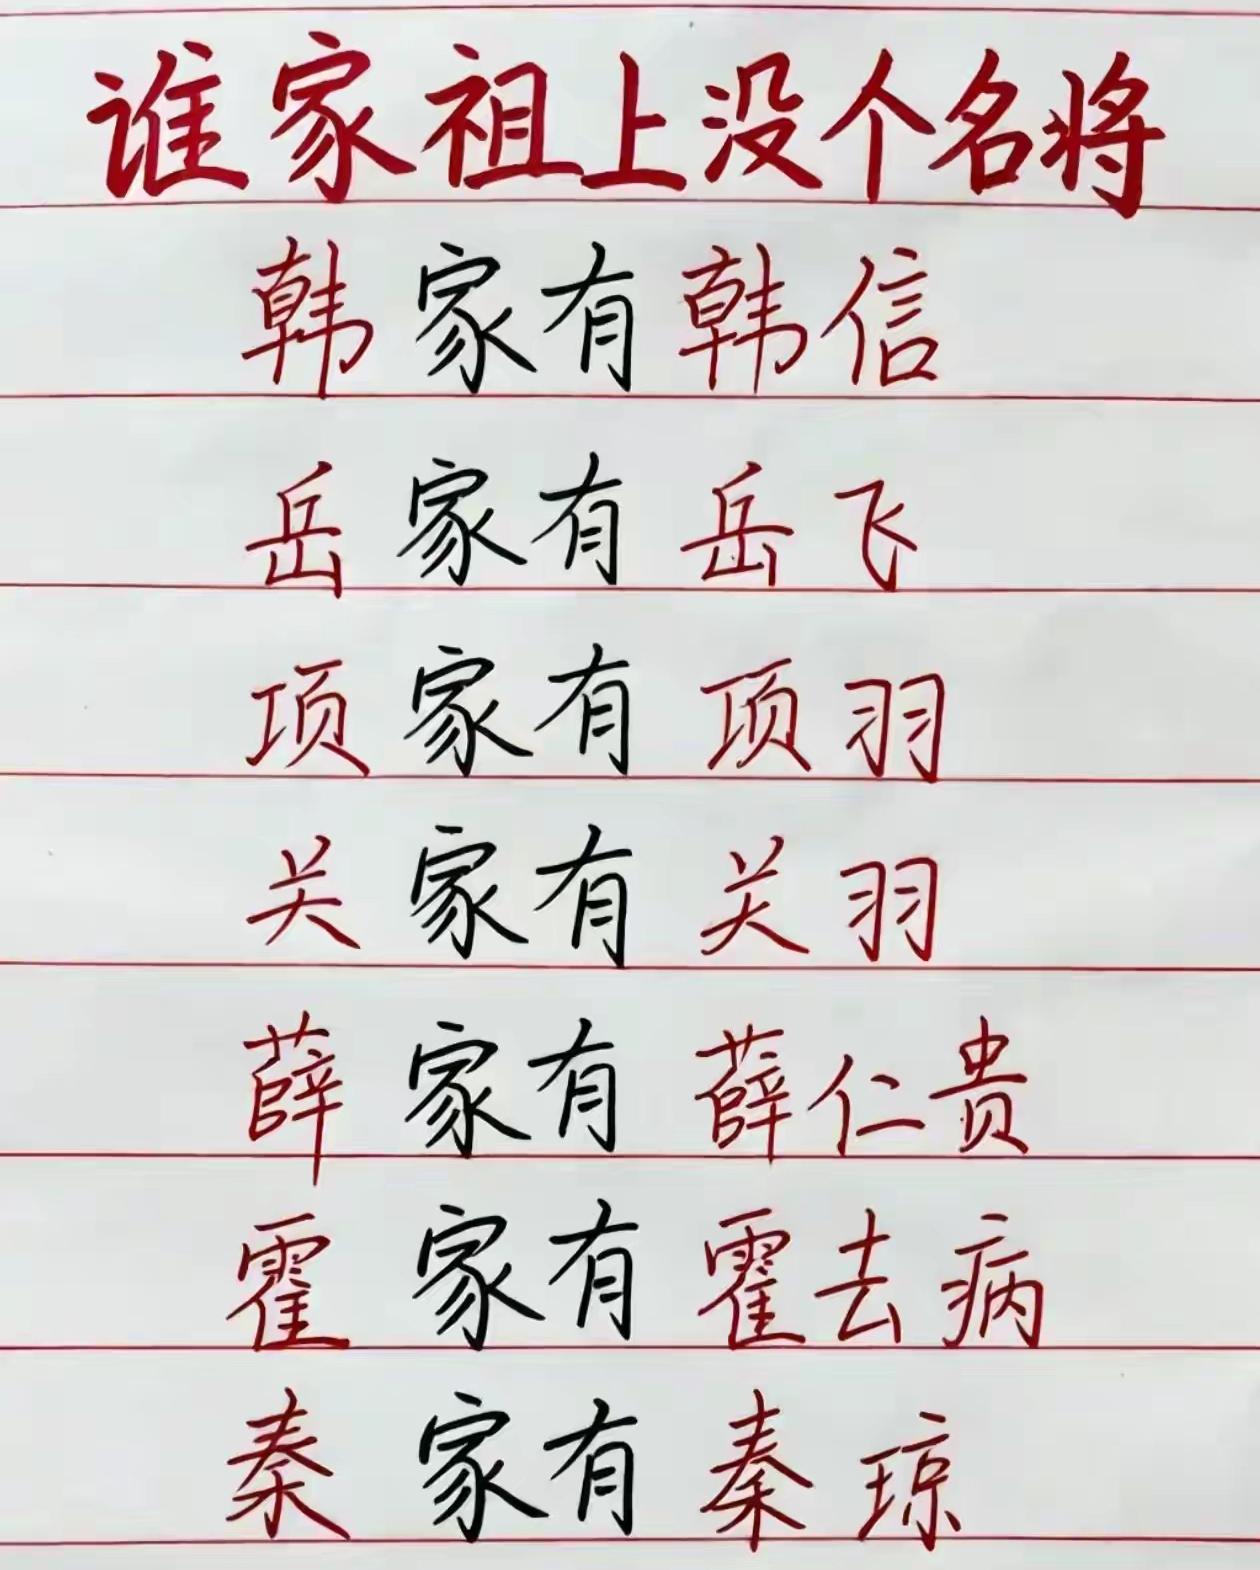 谁家祖上没个名将
韩家有韩信
岳家有岳飞
项家有项羽
关家有关羽
薛家有薛仁贵
霍家有霍去病
秦家有秦琼